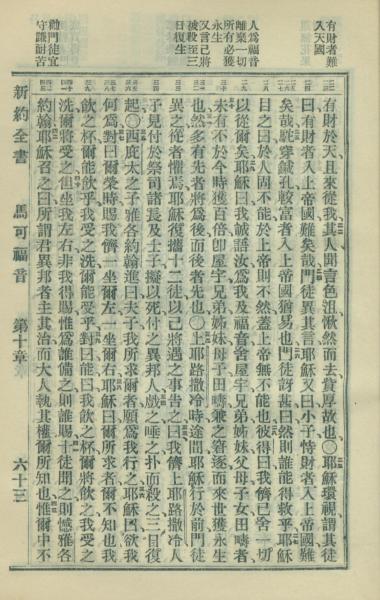 有財者難
入天國
人爲福音
離棄一切
所有必獲
永生
又言己將
被殺至三
日復生
勸門徒宜
守謙耐苦
有財於天且來從我其人聞言色沮愀然而去貲厚故也○耶穌環視謂其徒
曰有財者入上帝國難矣哉門徒異其言耶穌又曰小子恃財者入上帝國難
矣哉駝穿鍼孔較富者入上帝國猶易也門徒訝甚曰然則誰能得救乎耶穌
目之曰於人固不能於上帝則不然蓋上帝無不能也彼得曰我儕已舍一切
以從爾矣耶穌曰我誠語汝爲我及福音舍屋宇兄弟姊妹父母子女田疇者
未有不於今時獲百倍卽屋宇兄弟姊妹母子田疇兼之窘逐而來世獲永生
也然多有先者將爲後而後者先也○上耶路撒冷時途間耶穌行於前門徒
異之從者懼焉耶穌復攜十二徒以己將遇之事告之曰我儕上耶路撒冷人
子見付於祭司諸長及士子擬以死付之異邦人戲之唾之扑而殺之三日復
起○西庇太之子雅各約翰進曰夫子我所求者願爲我行之耶穌曰欲我
何爲對曰爾榮時賜我儕一坐爾左一坐爾右耶穌曰爾所求者爾不知也我
飲之杯爾能飲乎我受之洗爾能受乎對曰能曰我飲之杯爾將飲之我受之
洗爾將受之但坐我左右非我得賜惟爲誰備之則誰賜十徒聞之則憾雅各
約翰耶穌召之曰所謂君異邦者主其治而大人執其權爾所知也惟爾中不
新約全書 馬可福音 第十章 六十三